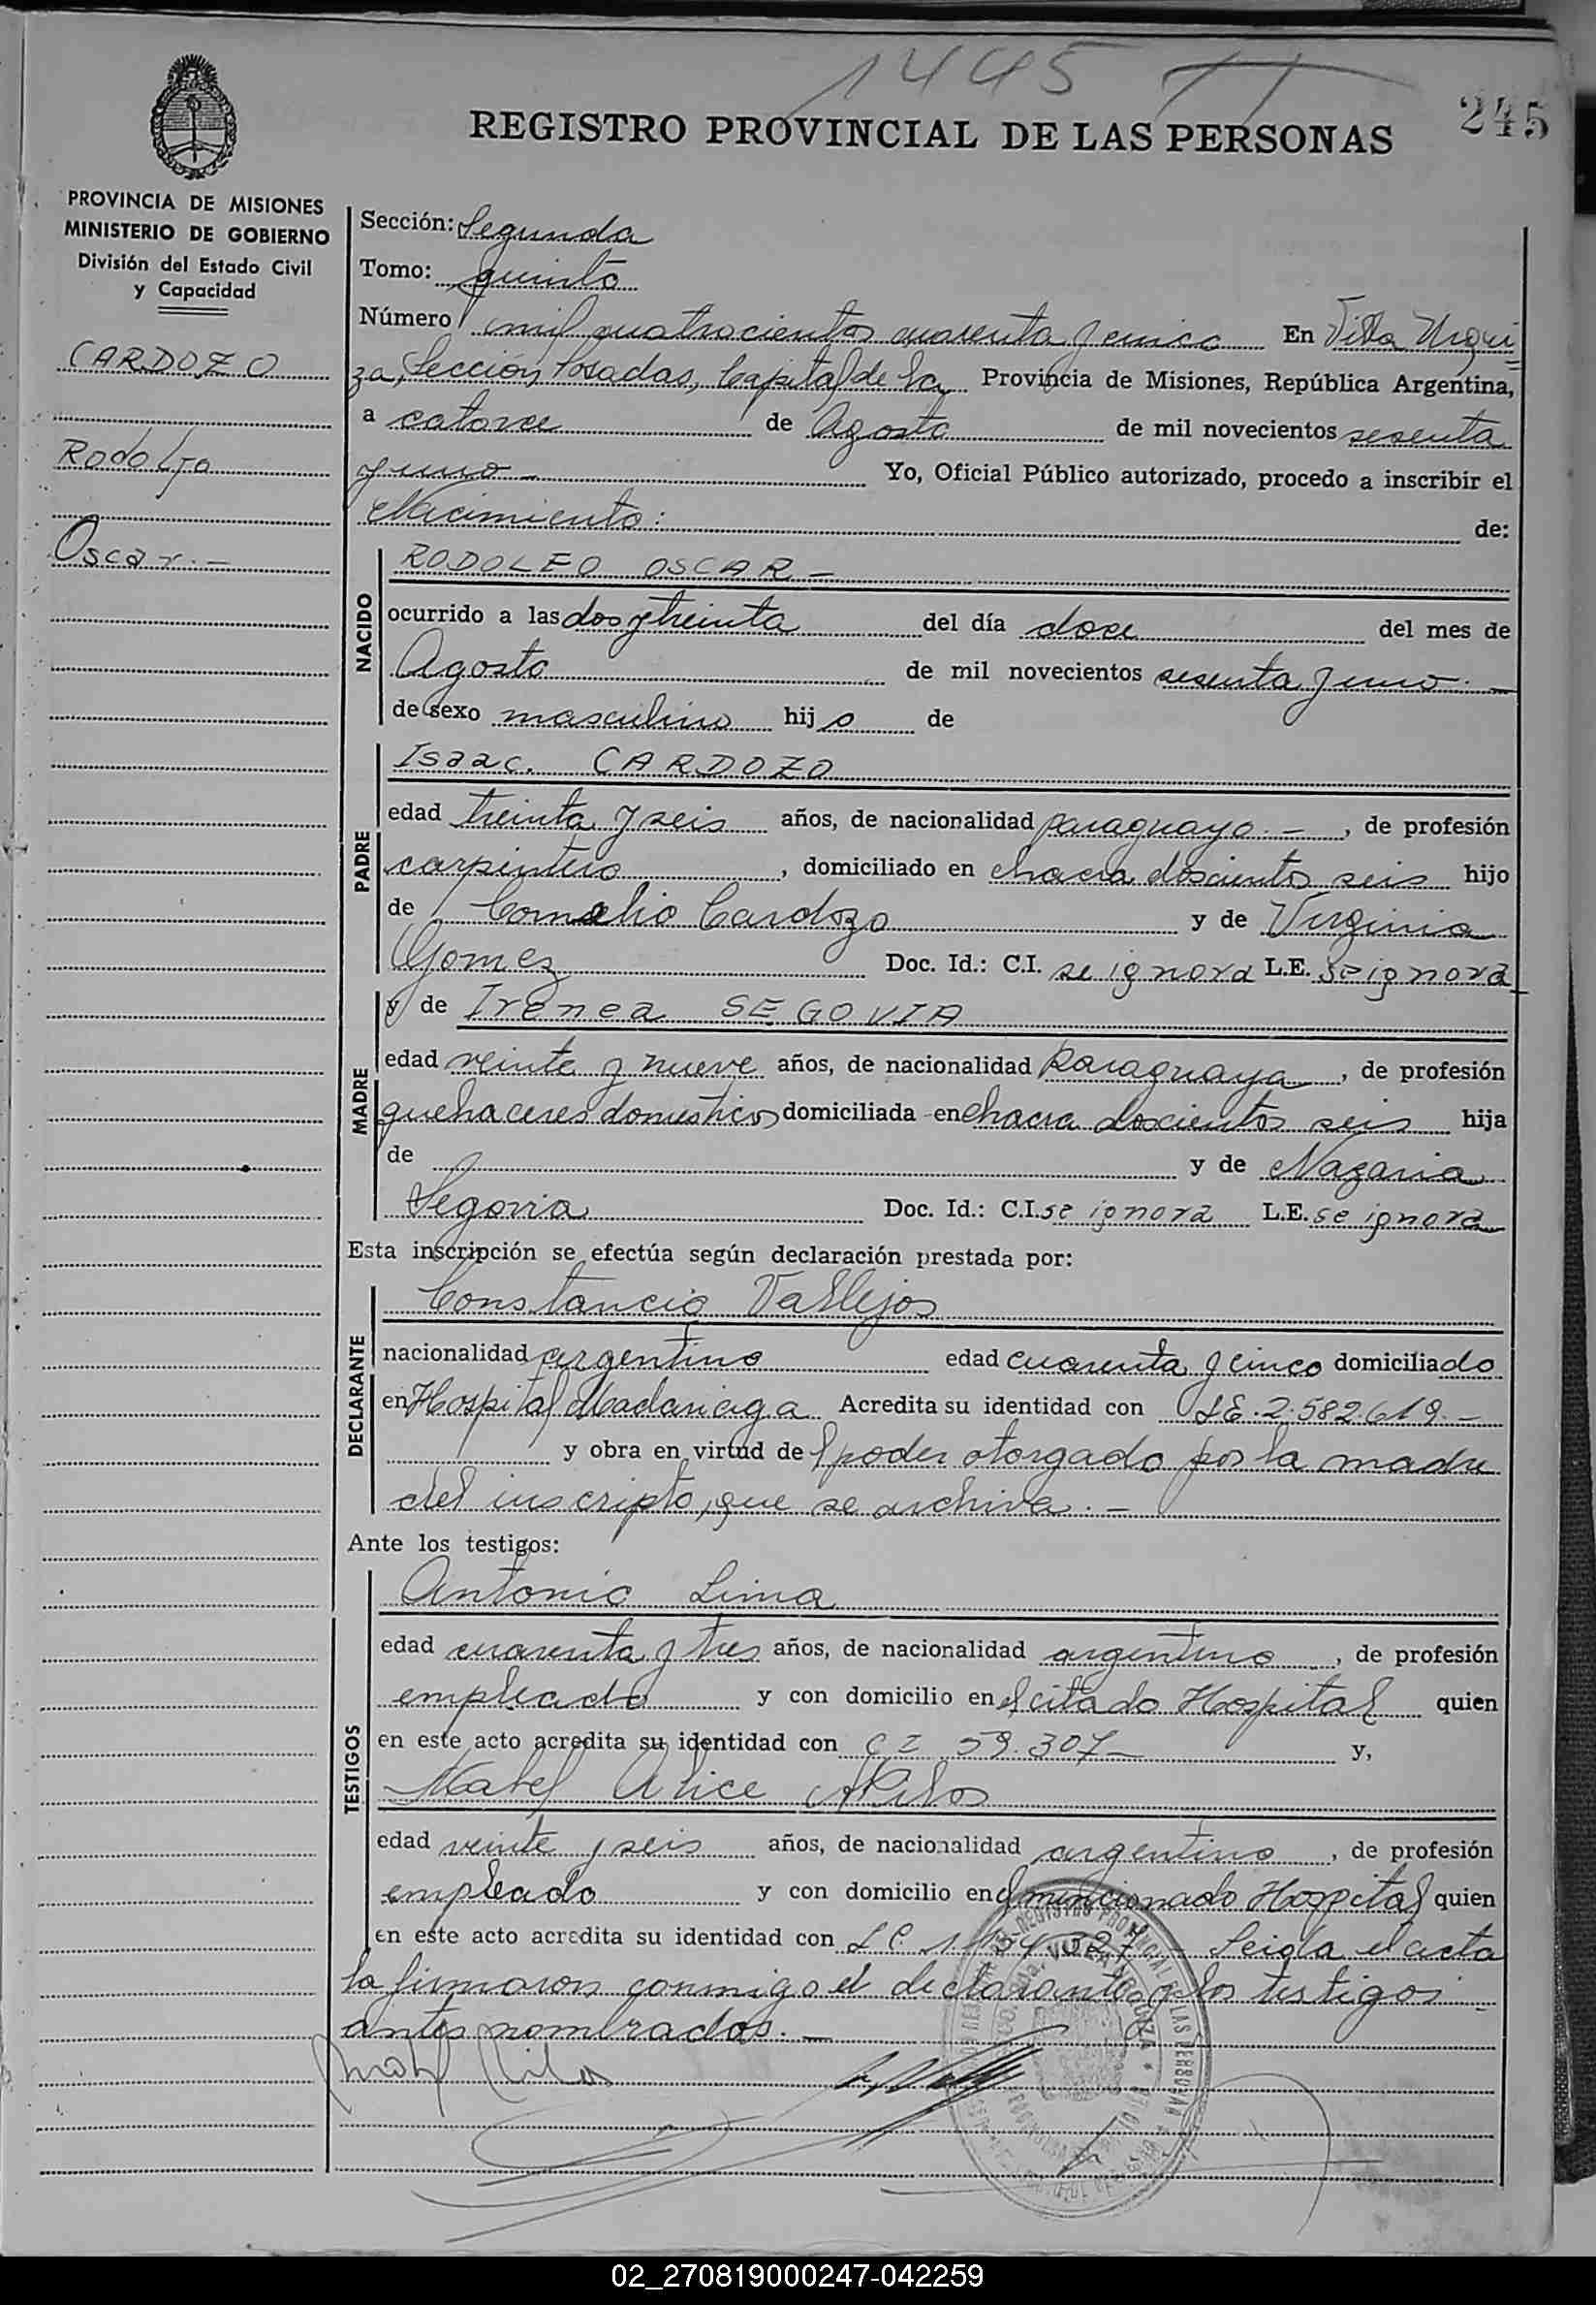 1445 T
245
REGISTRO PROVINCIAL DE LAS PERSONAS
PROVINCIA DE MISIONES
MINISTERIO DE GOBIERNO
División del Estado Civil
y Capacidad
CARDOZO
Rodolfo
Oscar.-
Sección: Segunda
Tomo: quinto
Número mil cuatrocientos cuarenta y cinco En Villa Urqui
za, Sección Posadas, Capital de la Provincia de Misiones, República Argentina,
a catorce de Agosto de mil novecientos sesenta
y uno - Yo, Oficial Público autorizado, procedo a inscribir el
Nacimiento: de:
NACIDO
RODOLFO OSCAR -
ocurrido a las dos y treinta del día doce del mes de
Agosto de mil novecientos sesenta y uno. -
de sexo masculino hijo de
PADRE
Isaac. CARDOZO
edad treinta y seis años, de nacionalidad paraguayo. - , de profesión
carpintero , domiciliado en chacra doscientos seis hijo
de Cornelio Cardozo y de Virginia
Gomez Doc. Id.: C.I. se ignora L.E. se ignora
MADRE
y de Irenea SEGOVIA
edad veinte y nueve años, de nacionalidad Paraguaya , de profesión
quehaceres domesticos domiciliada en chacra doscientos seis hija
de y de Nazaria
Segovia Doc. Id.: C.I. se ignora L.E. se ignora
Esta inscripción se efectúa según declaración prestada por:
DECLARANTE
Constancio Vallejos
nacionalidad argentino edad cuarenta y cinco domiciliado
en Hospital Madariaga Acredita su identidad con L.E. 2.582.619. -
y obra en virtud del poder otorgado por la madre
del inscripto, que se archiva. -
Ante los testigos:
TESTIGOS
Antonio Lima
edad cuarenta y tres años, de nacionalidad argentino , de profesión
empleado y con domicilio en el citado Hospital quien
en este acto acredita su identidad con C I 59.307 - y,
Mabel Alice
edad veinte y seis años, de nacionalidad argentino , de profesión
empleado y con domicilio en el mencionado Hospital quien
en este acto acredita su identidad con L C - Leida el acta
la firmaron conmigo el declarante y los testigos
antes nombrados. -
02_270819000247-042259